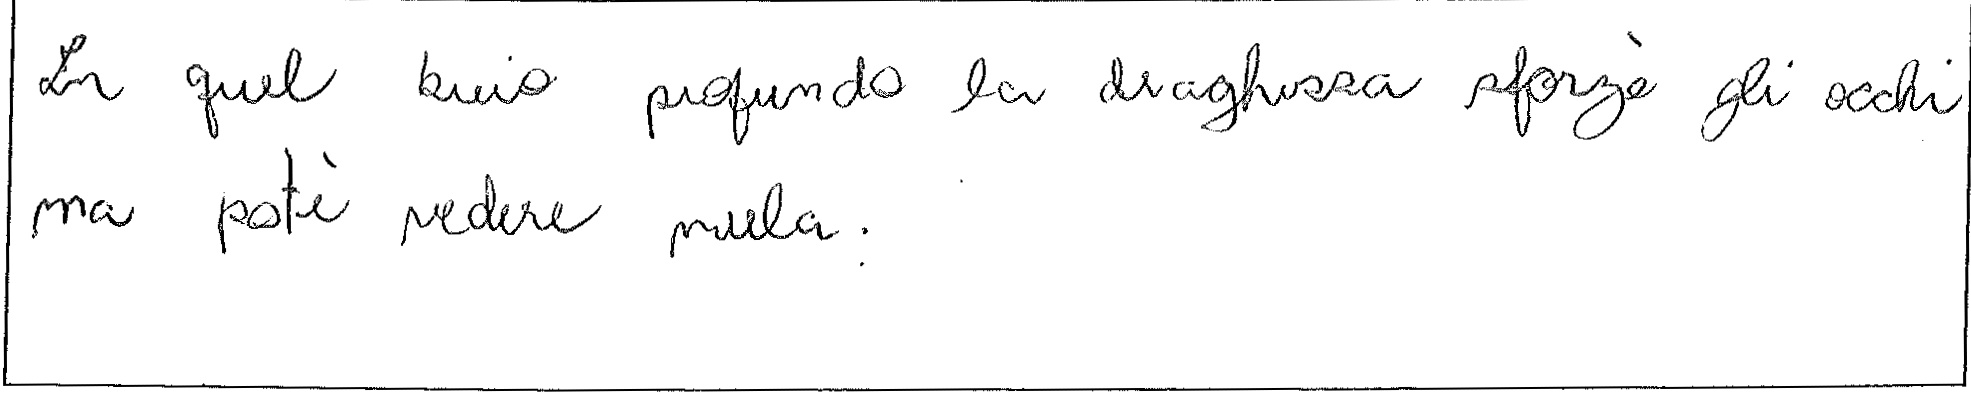 In quel buio profundo la draghessa sforzò gli occhi
ma potè vedere nula.